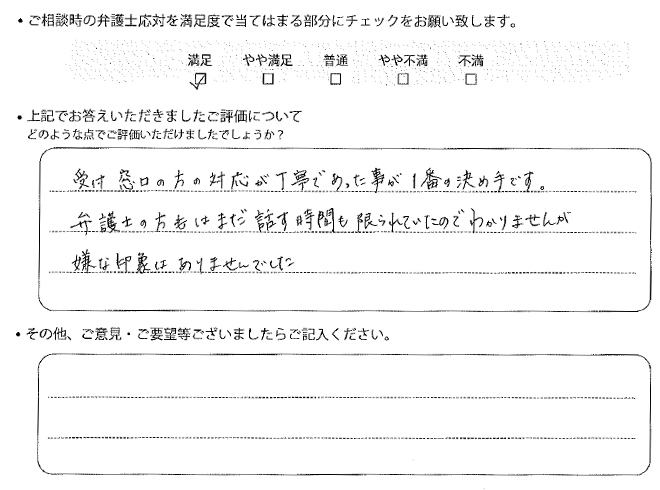 ・ご相談時の弁護士応対を満足度で当てはまる部分にチェックをお願い致します。
満足 やや満足 普通 やや不満 不満
☑ □ □ □ □
・上記でお答えいただきましたご評価について
どのような点でご評価いただけましたでしょうか？
受付窓口の方の対応が丁寧であった事が1番の決め手です。
弁護士の方はまだ話す時間も限られていたのでわかりませんが
嫌な印象はありませんでした
・その他、ご意見・ご要望等ございましたらご記入ください。